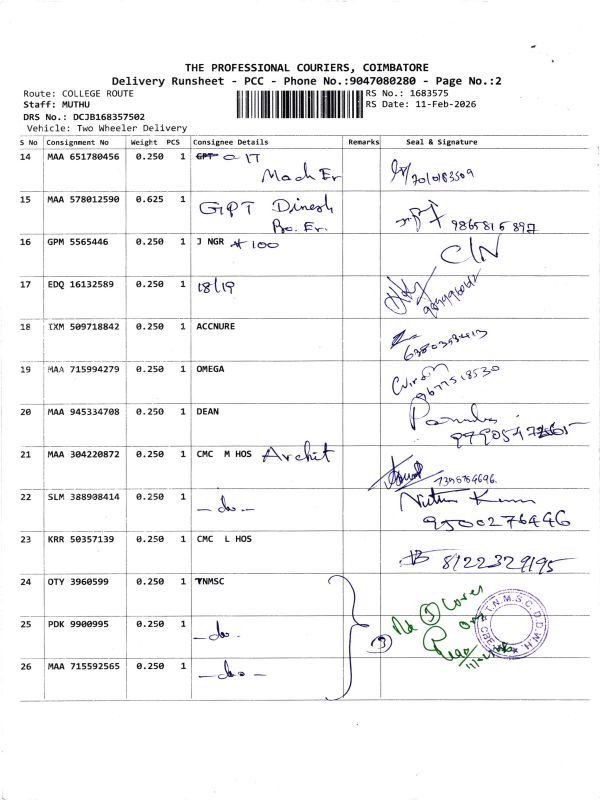 THE PROFESSIONAL COURIERS, COIMBATORE
Delivery Runsheet - PCC - Phone No.:9047080280 - Page No.:2
Route: COLLEGE ROUTE
RS No.: 1683575
Staff: MUTHU
RS Date: 11-Feb-2026
DRS No.: DCJB168357502
Vehicle: Two Wheeler Delivery
S No Consignment No Weight PCS Consignee Details Remarks Seal & Signature
14 MAA 651780456 0.250 1 GPT GIT
Mach Er
7010183509
15 MAA 578012590 0.625 1 GIPT Dinesh
Bo. Er.
9865816897
16 GPM 5565446 0.250 1 J NGR #100
C/N
17 EDQ 16132589 0.250 1 18/19
18 IXM 509718842 0.250 1 ACCNURE
6380398413
19 MAA 715994279 0.250 1 OMEGA
9677518530
20 MAA 945334708 0.250 1 DEAN
21 MAA 304220872 0.250 1 CMC M HOS Archit
7395764696
22 SLM 388908414 0.250 1 -do-
9500276446
23 KRR 50357139 0.250 1 CMC L HOS
8122329195
24 OTY 3960599 0.250 1 TNMSC
25 PDK 9900995 0.250 1 -do-
3
Rd 3 Cores
only
26 MAA 715592565 0.250 1 -do-
T.N.M.S.C. D.D.W.H. CBE